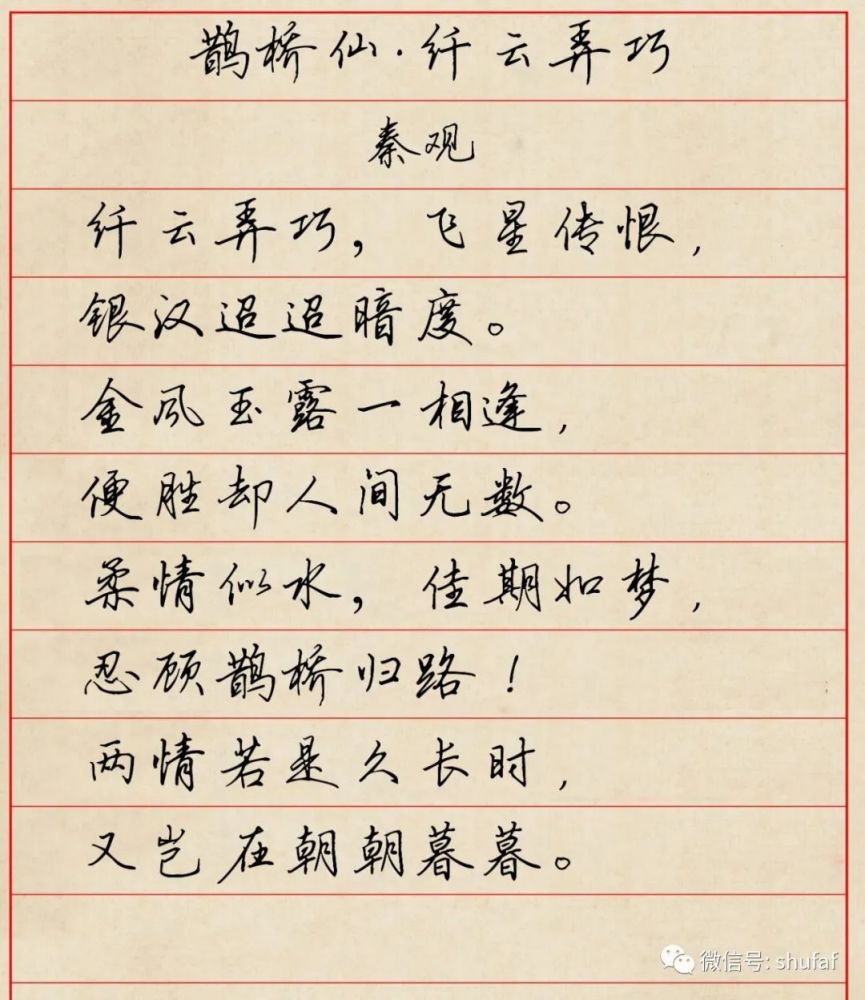 鹊桥仙·纤云弄巧
秦观
纤云弄巧，飞星传恨，
银汉迢迢暗度。
金风玉露一相逢，
便胜却人间无数。
柔情似水，佳期如梦，
忍顾鹊桥归路！
两情若是久长时，
又岂在朝朝暮暮。
微信号: shufaf